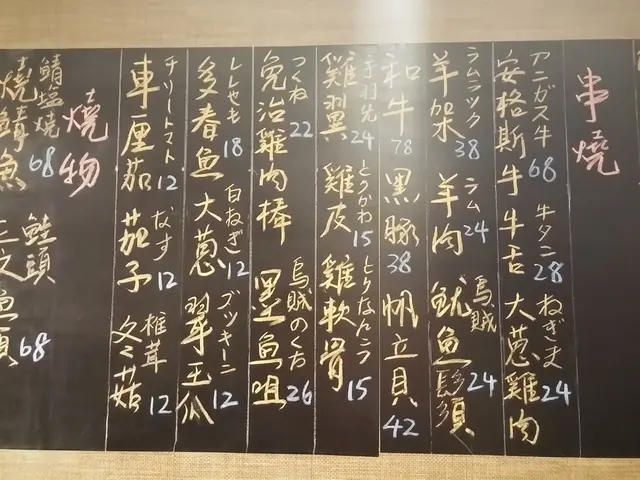 串燒
アニガス牛
安格斯牛 68
牛タニ
牛舌 28
ねぎま
大蔥雞肉 24
ラムラック
羊架 38
ラム
羊肉 24
烏賊
魷魚鬚 24
和牛 78
黑豚 38
帆立貝 42
手羽先
雞翼 24
とりかわ
雞皮 15
雞軟骨 15
つくね
免治雞肉棒 22
烏賊のくち
墨魚咀 26
ししゃも
多春魚 18
白ねぎ
大蔥 12
ズッキーニ
翠玉瓜 12
チリートマト
車厘茄 12
なす
茄子 12
椎茸
冬菇 12
燒物
鯖塩焼
燒鯖魚 68
鮭頭
三文魚頭 68